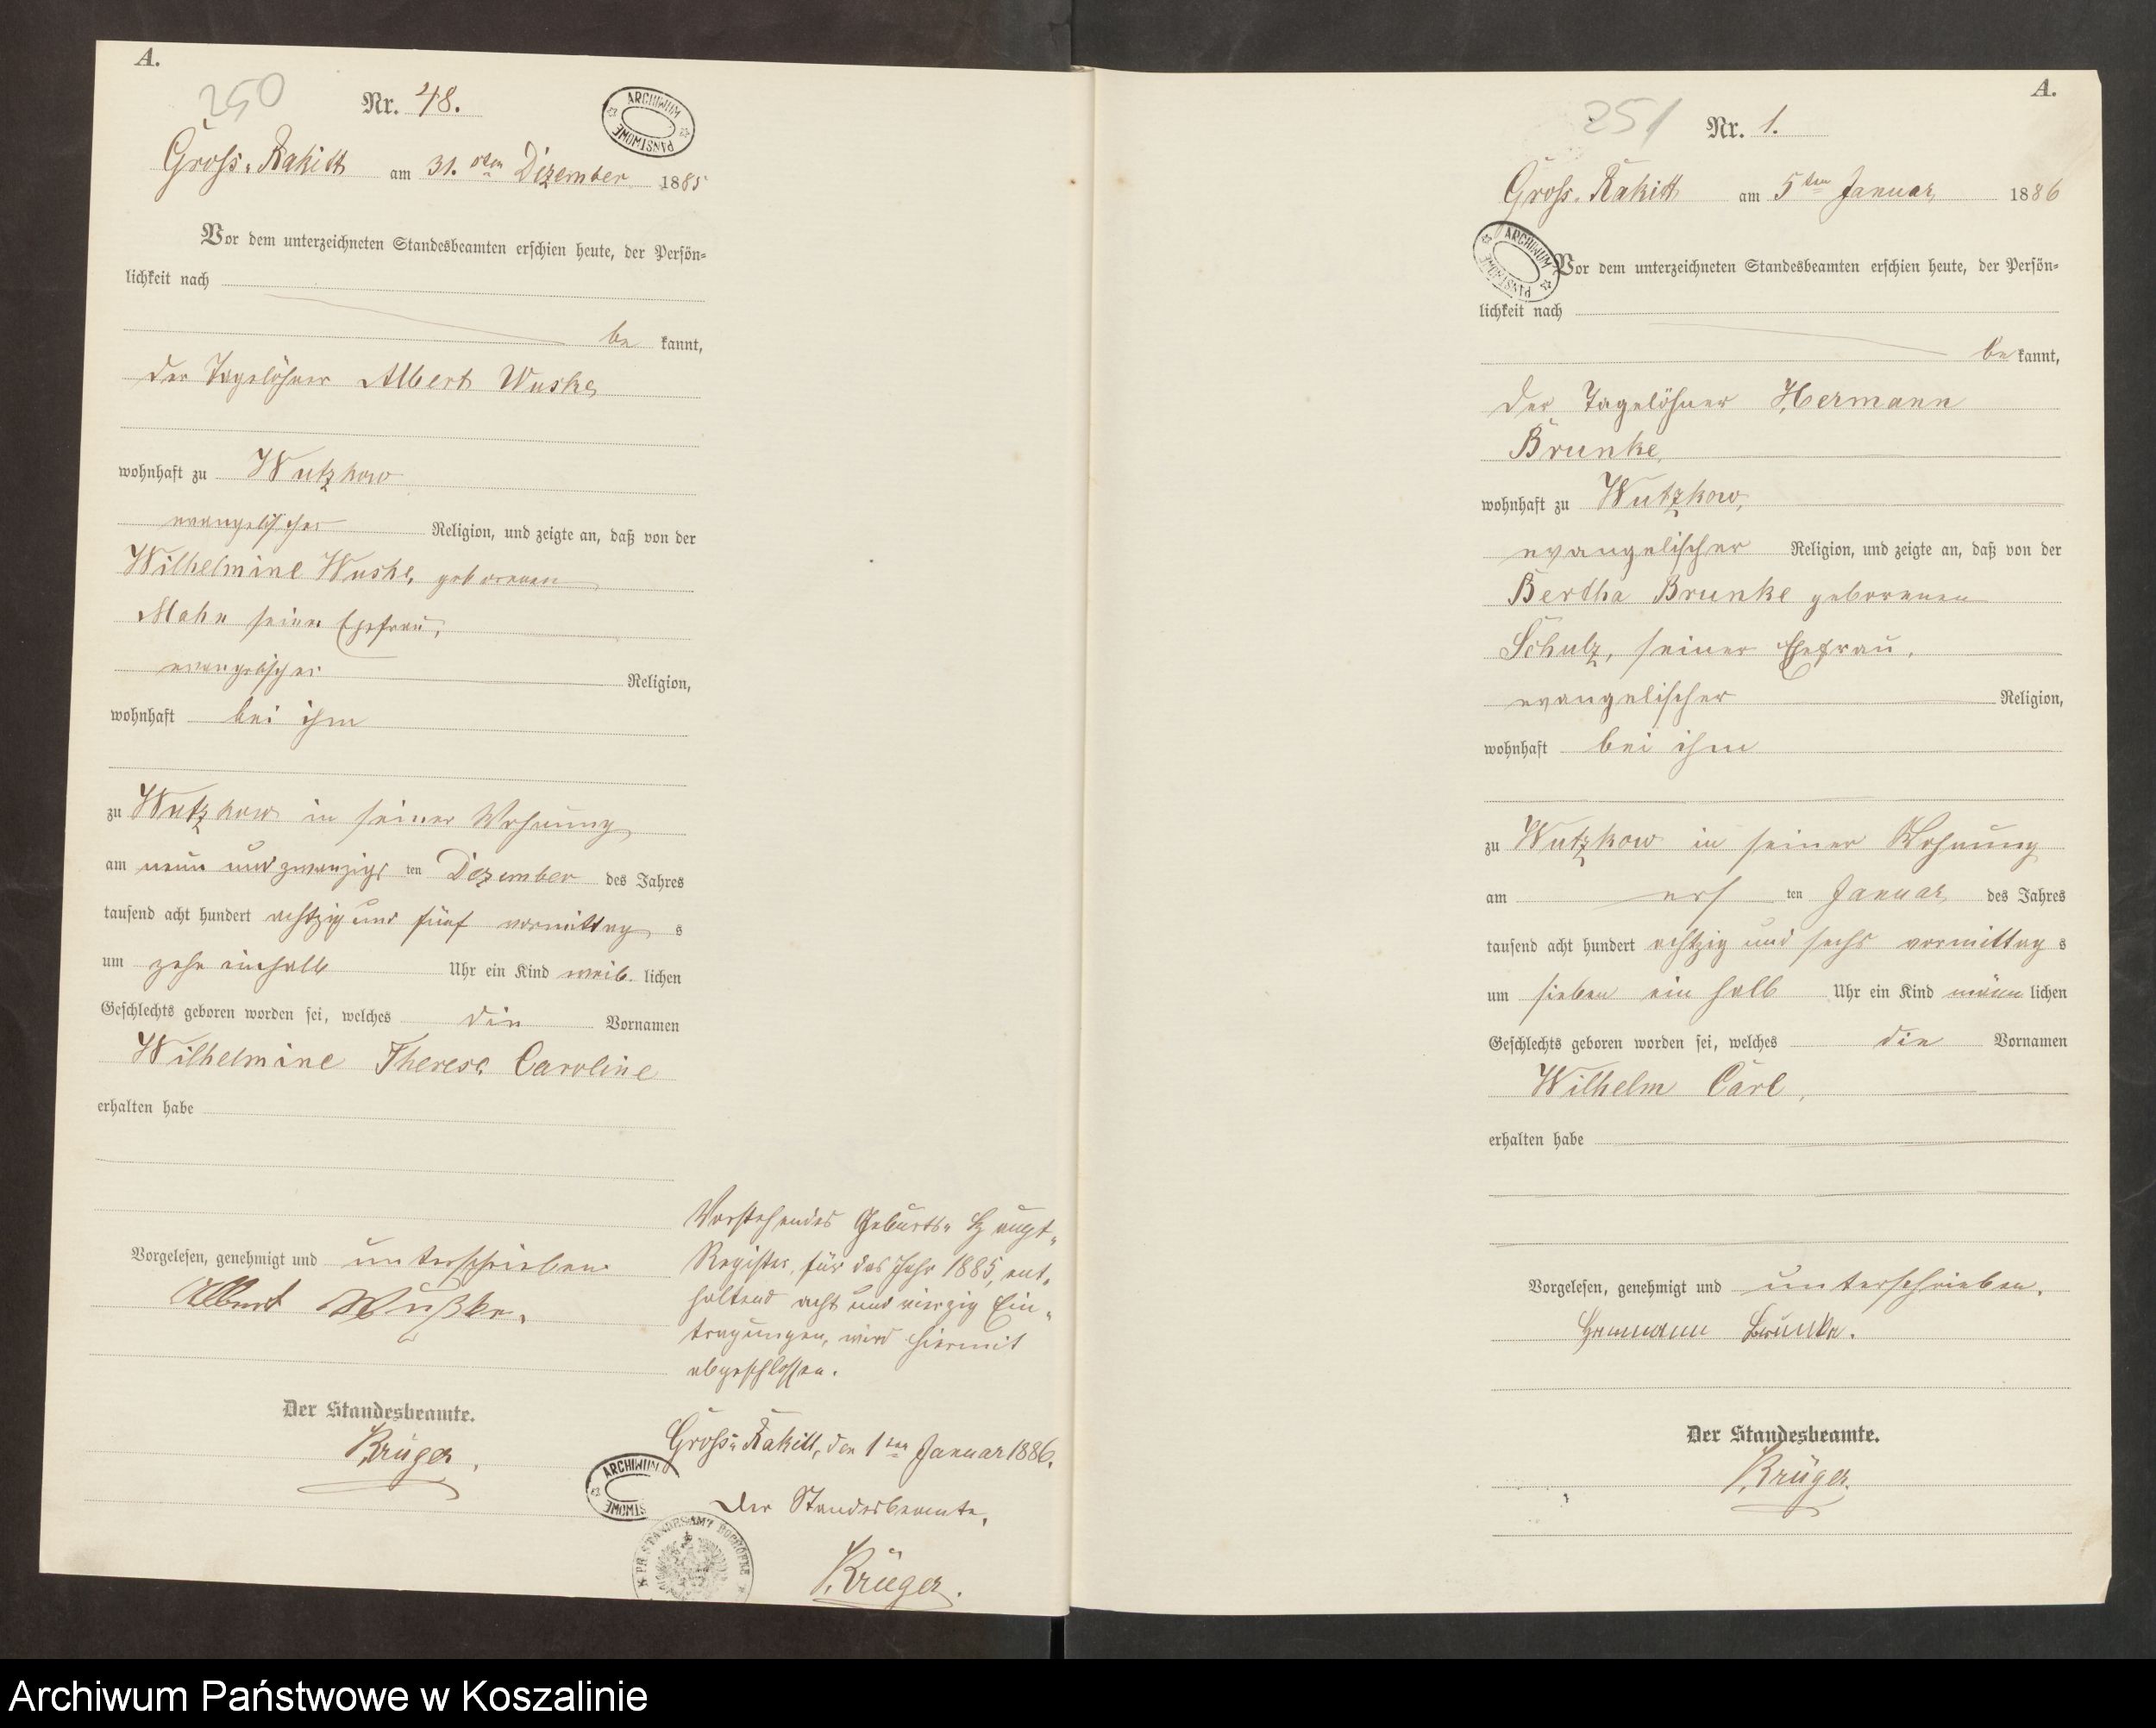 A.
250
Nr. 48.
ARCHIWUM PAŃSTWOWE
Gross-Rakitt am 31. sten Dezember 1885
Vor dem unterzeichneten Standesbeamten erschien heute, der Persön-
lichkeit nach
be kannt,
der Tagelöhner Albert Wuske,
wohnhaft zu Wutzkow
evangelischer Religion, und zeigte an, daß von der
Wilhelmine Wuske, geborenen
seiner Ehefrau,
evangelischer Religion,
wohnhaft bei ihm
zu Wutzkow in seiner Wohnung
am neun und zwanzigs ten Dezember des Jahres
tausend acht hundert achtzig und fünf vormittag s
um zehn einhalb Uhr ein Kind weib- lichen
Geschlechts geboren worden sei, welches die Vornamen
Wilhelmine Therese Caroline
erhalten habe
Vorgelesen, genehmigt und unterschrieben
Albert Wußke.
Der Standesbeamte.
Krüger.
Vorstehendes Geburts-Haupt-
Register, für das Jahr 1885, ent-
haltend acht und vierzig Ein-
tragungen, wird hiermit
abgeschlossen.
Gross-Rakitt, den 1ten Januar 1886.
ARCHIWUM PAŃSTWOWE
Der Standesbeamte.
K. PR. STANDESAMT
Krüger.
A.
251
Nr. 1.
Gross-Rakitt am 5ten Januar 1886
ARCHIWUM PAŃSTWOWE
Vor dem unterzeichneten Standesbeamten erschien heute, der Persön-
lichkeit nach
be kannt,
der Tagelöhner Hermann
Brunke,
wohnhaft zu Wutzkow,
evangelischer Religion, und zeigte an, daß von der
Bertha Brunke geborenen
Schulz, seiner Ehefrau,
evangelischer Religion,
wohnhaft bei ihm
zu Wutzkow in seiner Wohnung
am ers ten Januar, des Jahres
tausend acht hundert achtzig und sechs vormittag s
um sieben ein halb Uhr ein Kind männ lichen
Geschlechts geboren worden sei, welches die Vornamen
Wilhelm Carl,
erhalten habe
Vorgelesen, genehmigt und unterschrieben.
Hermann Brunke.
Der Standesbeamte.
Krüger.
Archiwum Państwowe w Koszalinie